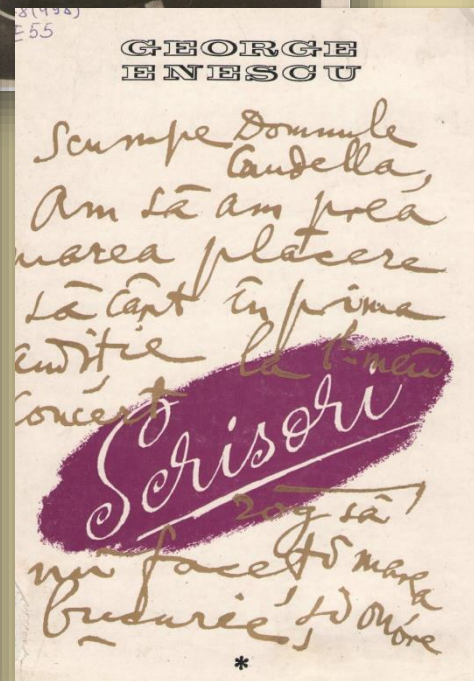 8(498)
E55
GEORGE
ENESCU
Scumpe Domnule
Caudella,
Am să am prea
marea plăcere
să cânt în prima
audiție la meu
Concert
Scrisori
rog să
mi faceți marea
bucurie, și onóre
*